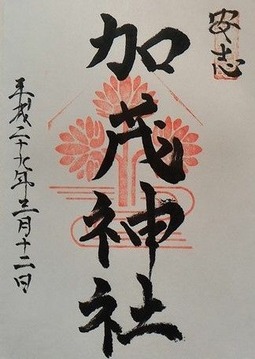 安志
加茂神社
平成二十九年三月十二日